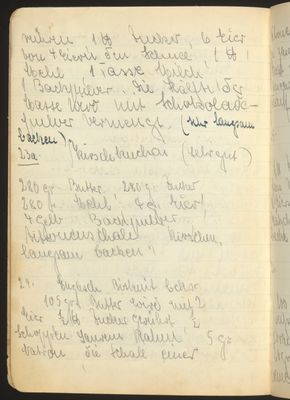 rühren 1 ℔ Zucker 6 Eier
von 4 Eiern den Schnee 1 ℔
Mehl 1 Tasse Milch
1 Backpulver. Die Hälfte der
Masse wird mit Schokolade-
pulver vermengt. (sehr langsam
backen)
23a. Kirschkuchen (sehr gut)
280 gr Butter 280 g Zucker
280 g Mehl 4 g Eier
4 Gelb Backpulver
Zitronenschale Kirschen,
langsam backen!
24. Englisch Biskuit
105 gr Butter wird mit 2
Eier ½ ℔ Zucker gerührt, ½
Schoppen sauren Rahm 5 gr
Natron die Schale einer